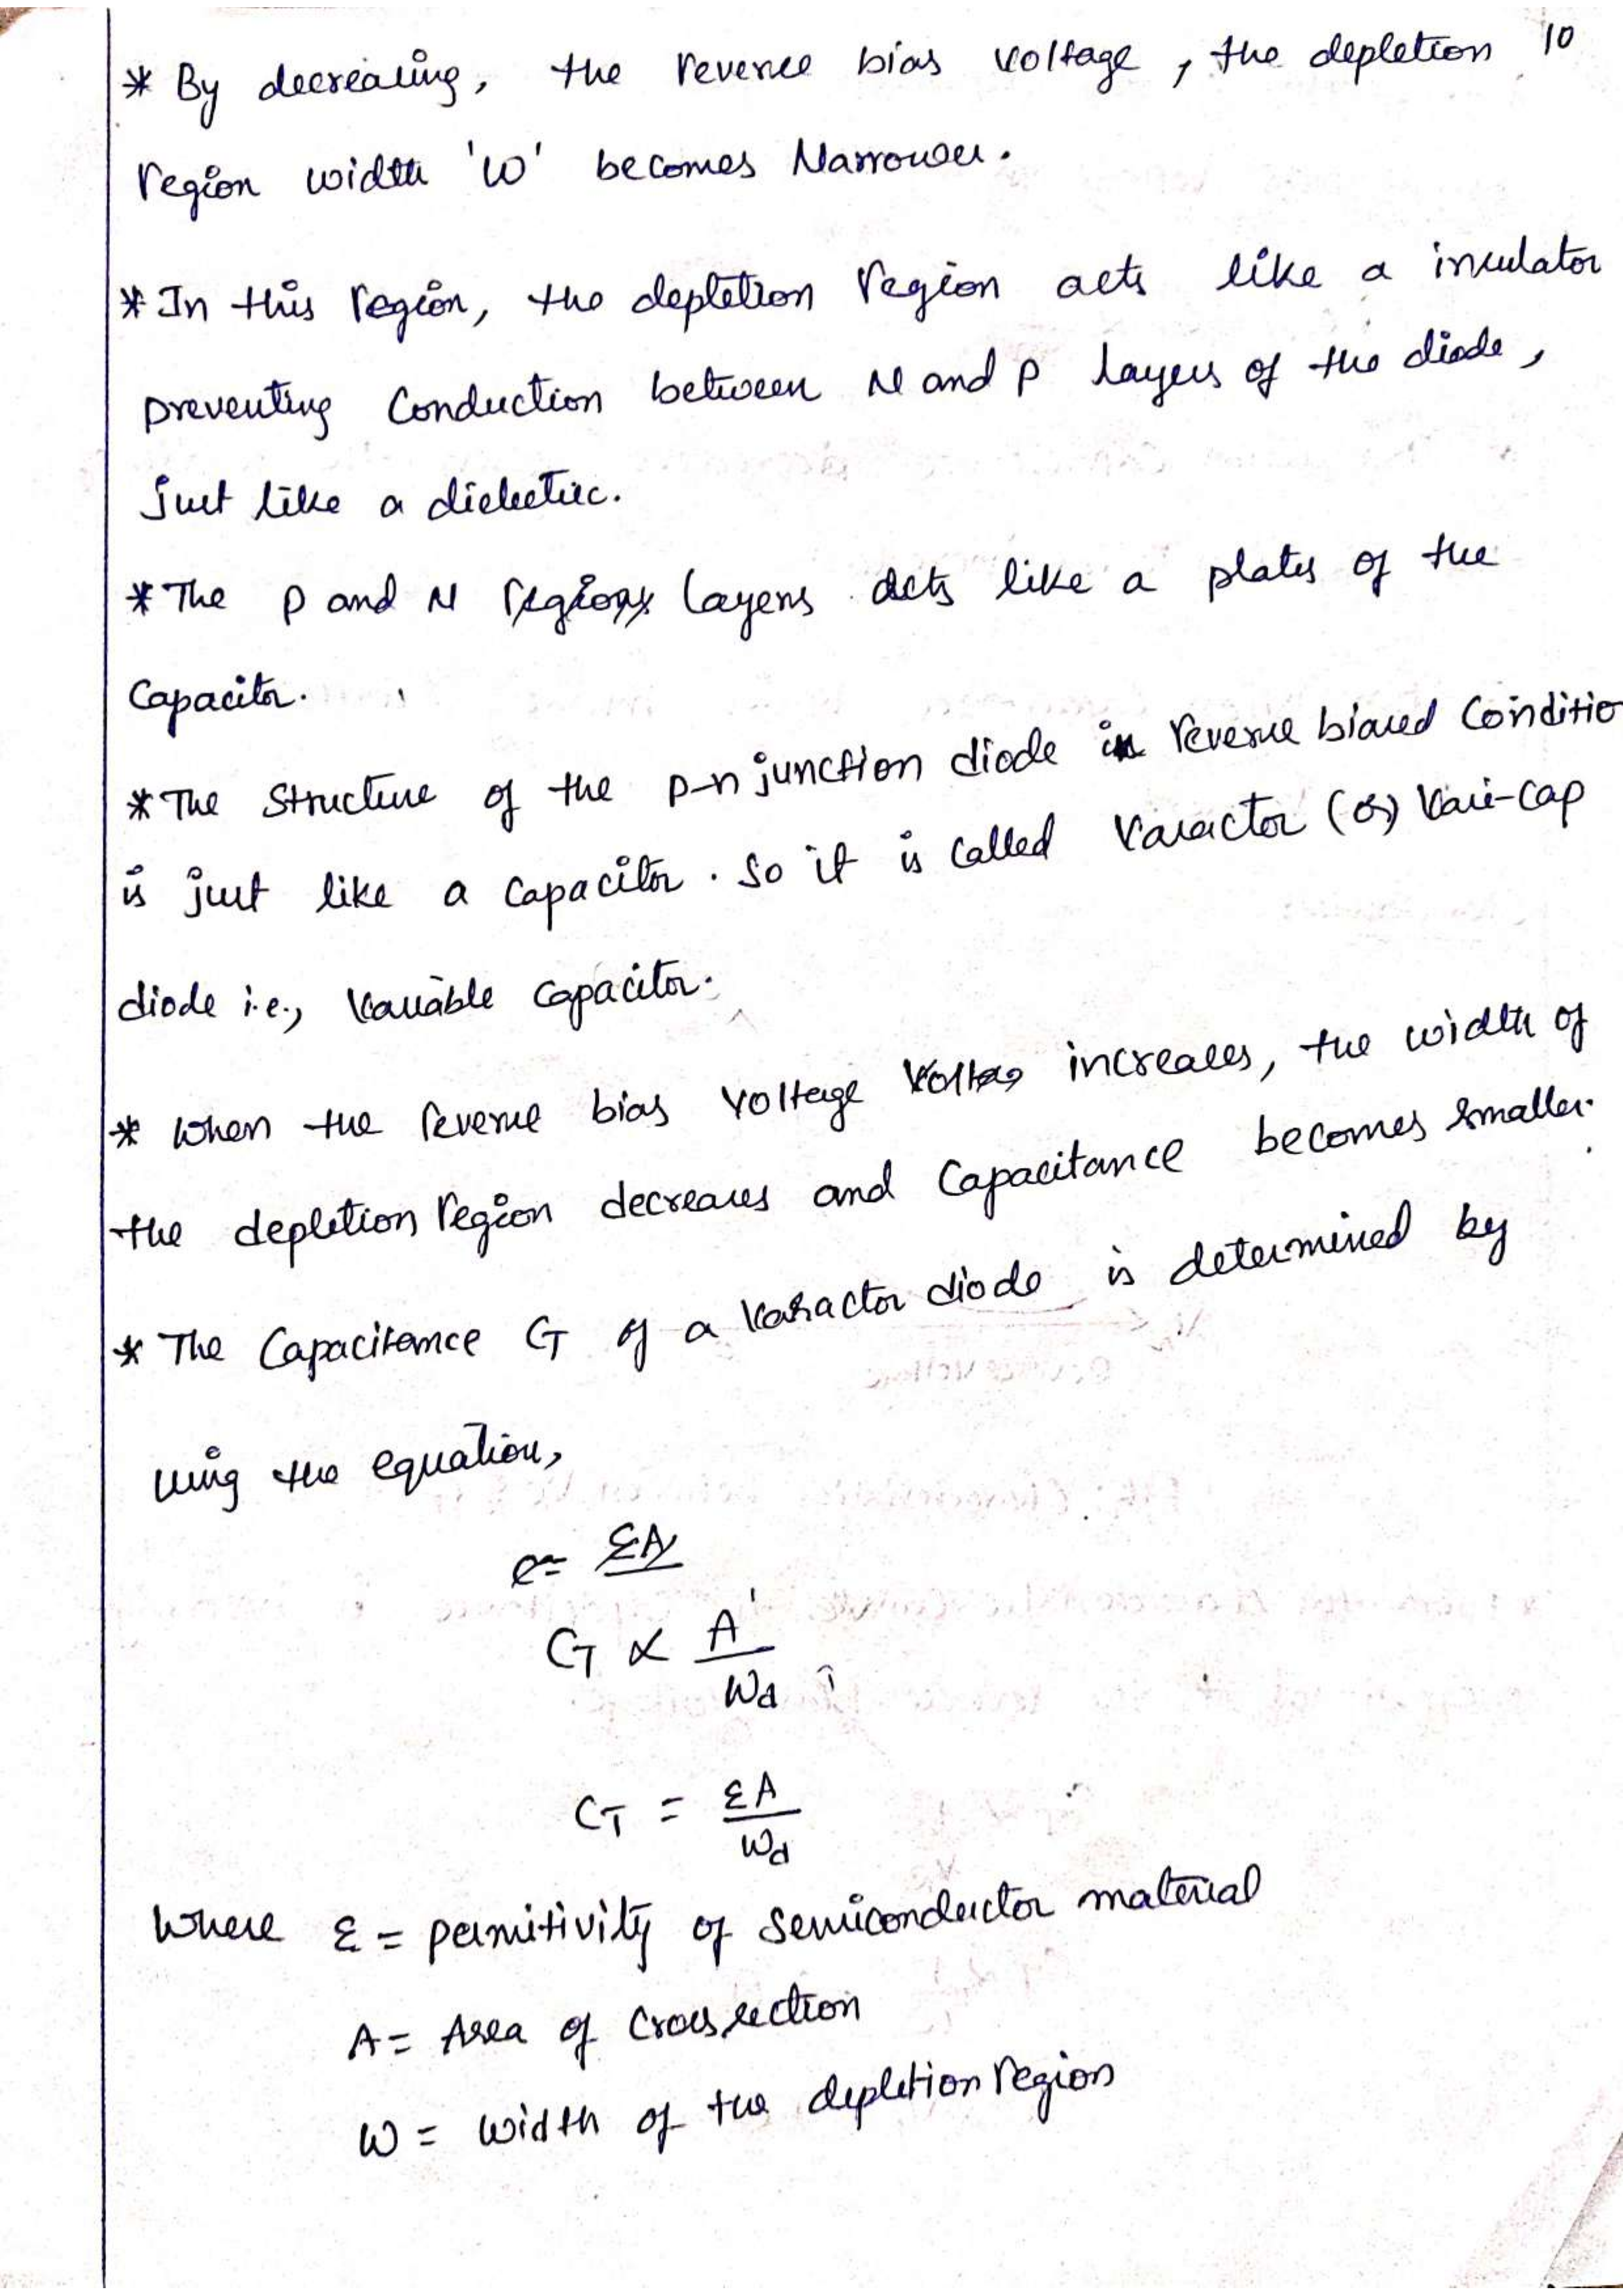 10
* By decreasing, the reverse bias voltage, the depletion
region width 'W' becomes Narrower.
* In this region, the depletion region acts like a insulator
preventing Conduction between N and P layers of the diode,
just like a dielectric.
* The P and N regions layers acts like a plates of the
Capacitor.
* The Structure of the p-n junction diode in reverse biased Conditio
is just like a Capacitor. So it is called Varactor (or) Vari-cap
diode i.e., Variable capacitor.
* When the reverse bias voltage voltag increases, the width of
the depletion region decreases and Capacitance becomes smaller.
* The Capacitance CT of a Varactor diode is determined by
using the equation,
C = εA
CT ∝ A / Wd
CT = εA / Wd
Where ε = permitivity of semiconductor material
A = Area of Cross section
W = Width of the depletion region